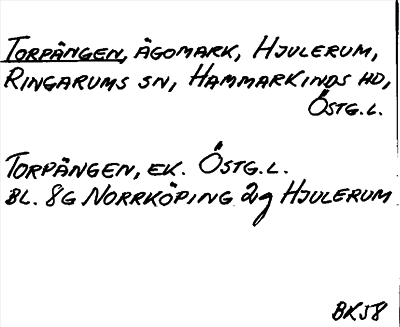 TORPÄNGEN, ÄGOMARK, HJULERUM,
RINGARUMS SN, HAMMARKINDS HD,
ÖSTG.L.
TORPÄNGEN, EK. ÖSTG.L.
BL. 8G NORRKÖPING 2g HJULERUM
BKJ8